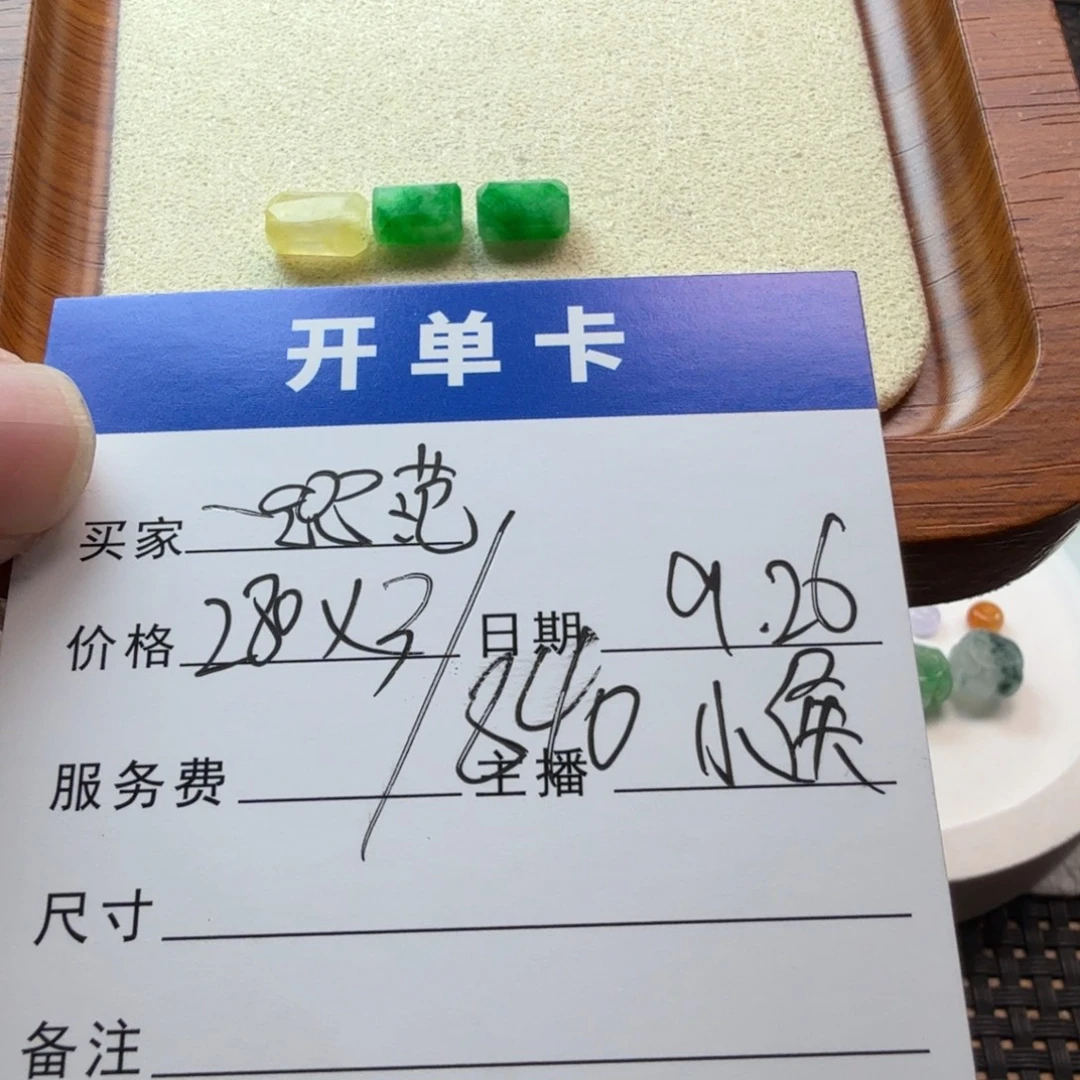 开单卡
买家 范
价格 280×3 日期 9.26
840
服务费 主播 小侯
尺寸
备注